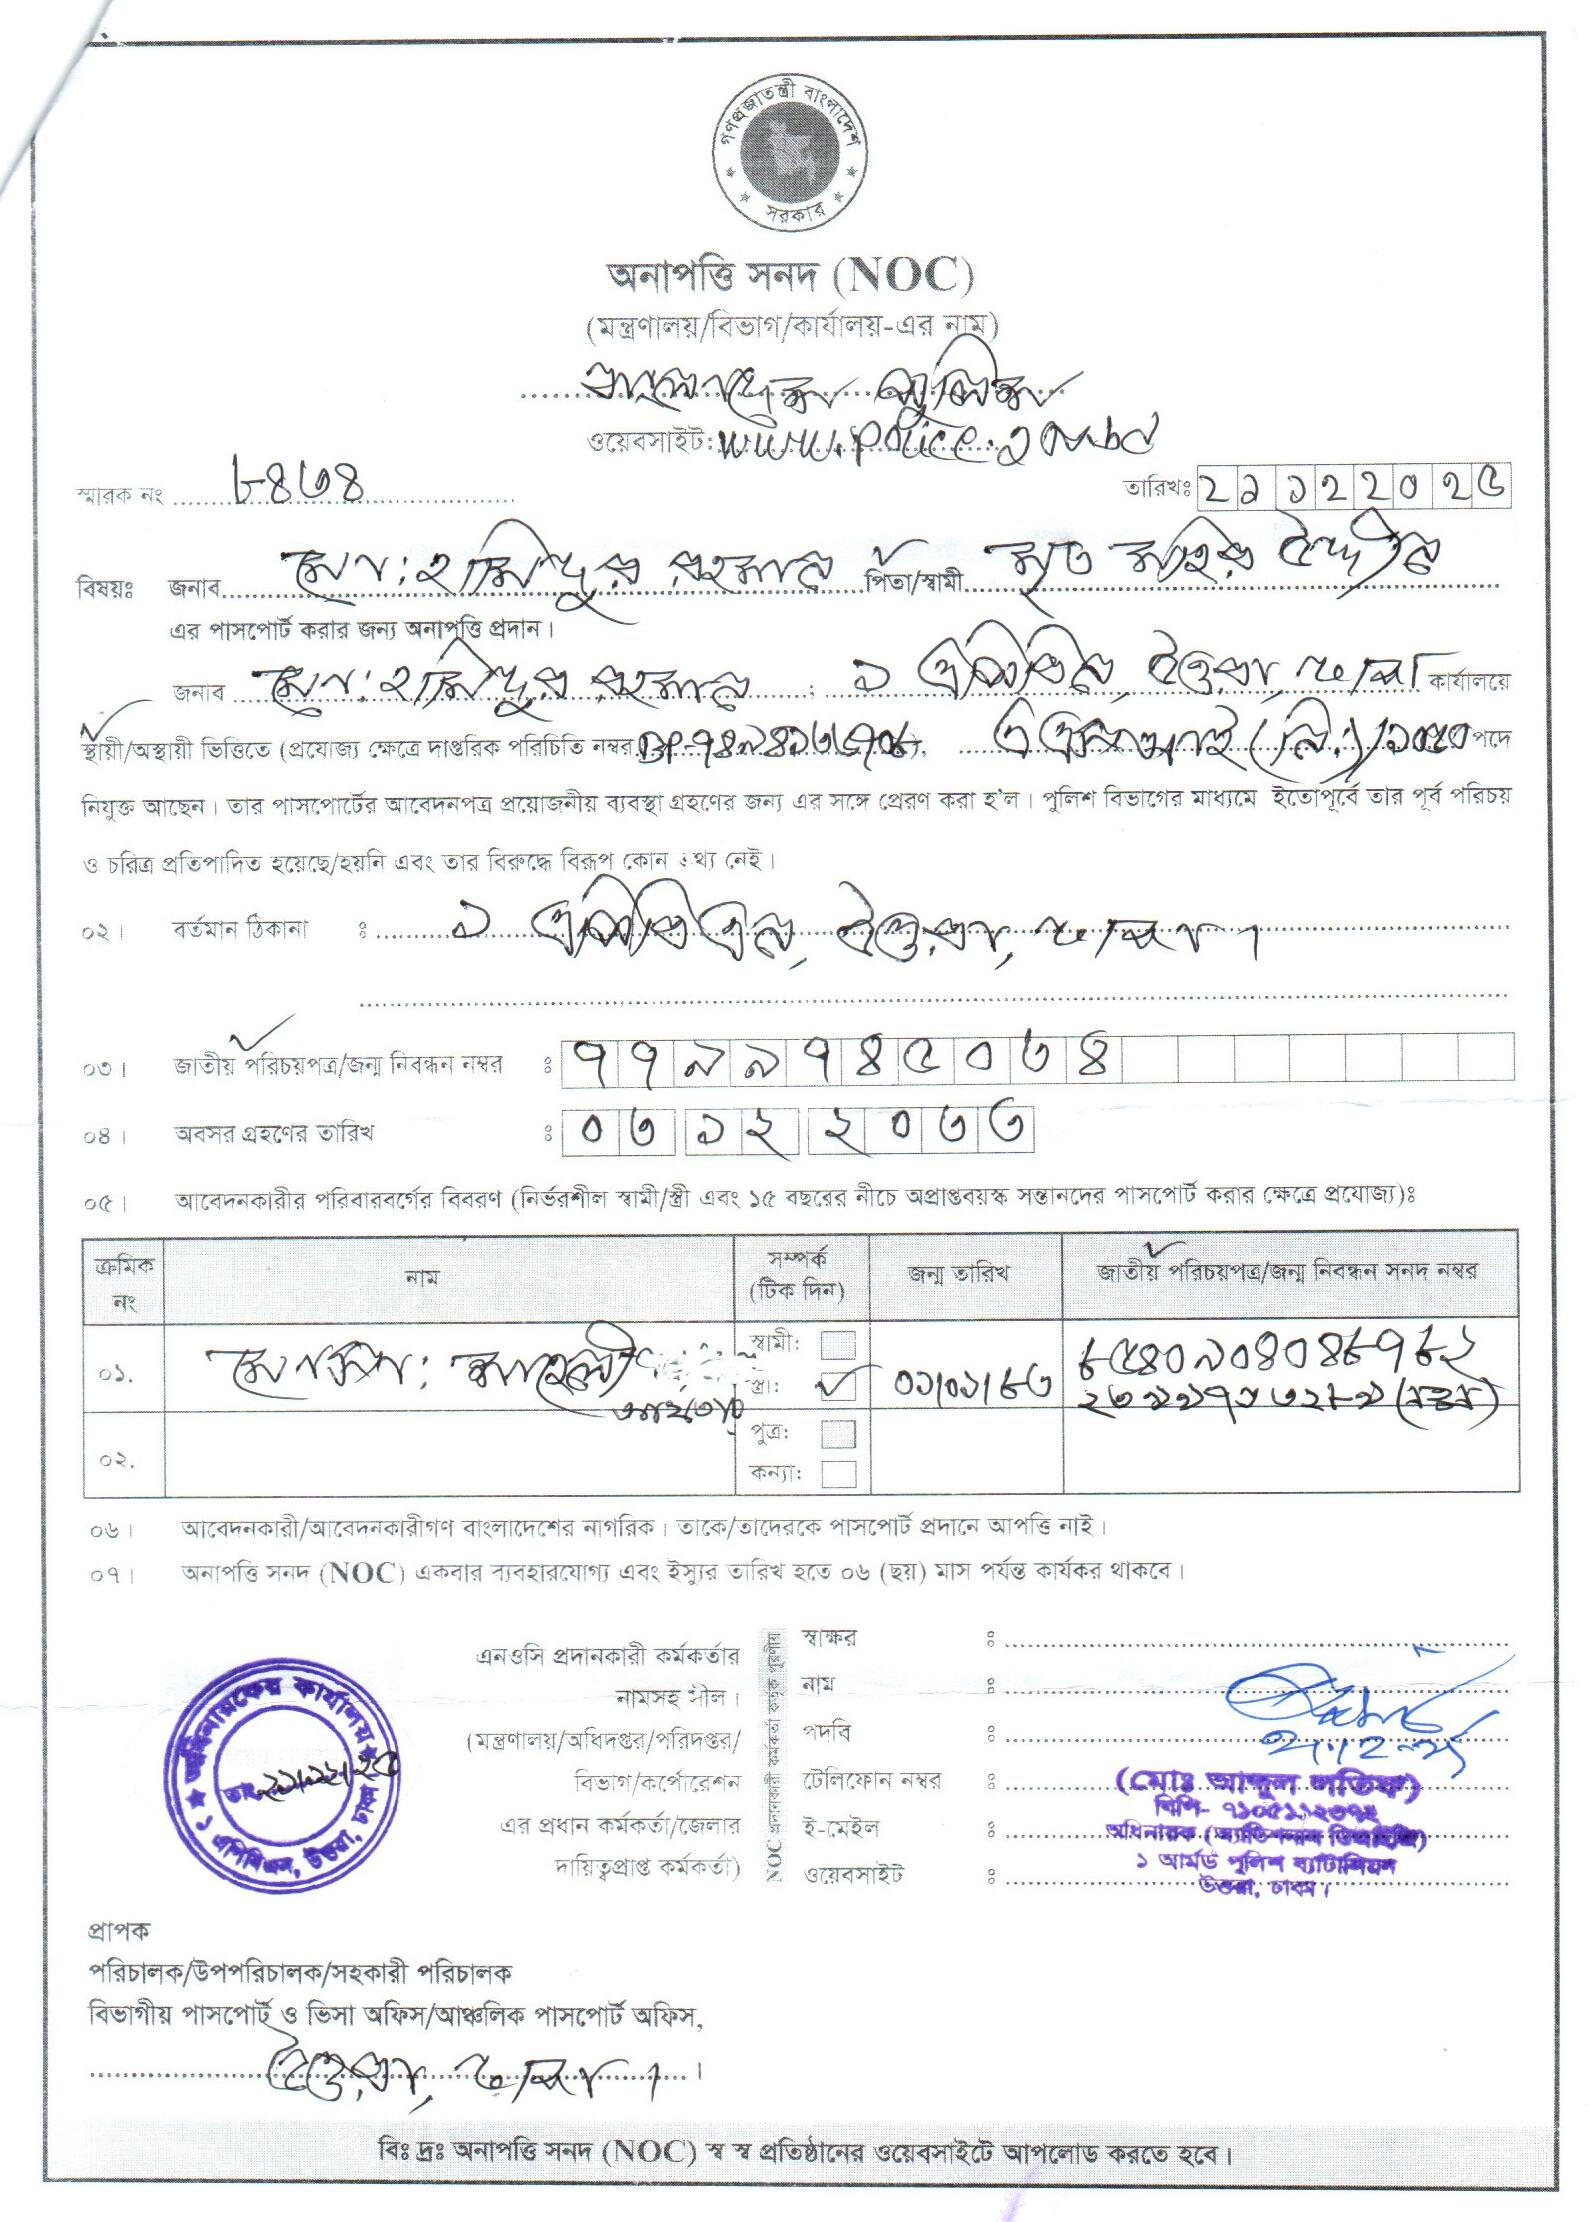 গণপ্রজাতন্ত্রী বাংলাদেশ
সরকার
অনাপত্তি সনদ (NOC)
(মন্ত্রণালয়/বিভাগ/কার্যালয়-এর নাম)
বাংলাদেশ পুলিশ
ওয়েবসাইট: www.police.gov.bd
স্মারক নং ৮৪৩৪
তারিখঃ ২১ ১২ ২০২৫
বিষয়ঃ জনাব মো: হামিদুর রহমান পিতা/স্বামী মৃত মহির উদ্দীন
এর পাসপোর্ট করার জন্য অনাপত্তি প্রদান।
জনাব মো: হামিদুর রহমান ; ১ এপিবিএন, উত্তরা, ঢাকা কার্যালয়ে
স্থায়ী/অস্থায়ী ভিত্তিতে (প্রযোজ্য ক্ষেত্রে দাপ্তরিক পরিচিতি নম্বর ), এএসআই (নি:)/১০৫০ পদে
নিযুক্ত আছেন। তার পাসপোর্টের আবেদনপত্র প্রয়োজনীয় ব্যবস্থা গ্রহণের জন্য এর সঙ্গে প্রেরণ করা হ'ল। পুলিশ বিভাগের মাধ্যমে ইতোপূর্বে তার পূর্ব পরিচয়
ও চরিত্র প্রতিপাদিত হয়েছে/হয়নি এবং তার বিরুদ্ধে বিরূপ কোন তথ্য নেই।
০২। বর্তমান ঠিকানা ঃ ১ এপিবিএন, উত্তরা, ঢাকা।
০৩। জাতীয় পরিচয়পত্র/জন্ম নিবন্ধন নম্বর ঃ ৭৭৯৯৭৪৫০৩৪
০৪। অবসর গ্রহণের তারিখ ঃ ০৩ ১২ ২০৩৩
০৫। আবেদনকারীর পরিবারবর্গের বিবরণ (নির্ভরশীল স্বামী/স্ত্রী এবং ১৫ বছরের নীচে অপ্রাপ্তবয়স্ক সন্তানদের পাসপোর্ট করার ক্ষেত্রে প্রযোজ্য)ঃ
ক্রমিক নং নাম সম্পর্ক (টিক দিন) জন্ম তারিখ জাতীয় পরিচয়পত্র/জন্ম নিবন্ধন সনদ নম্বর
০১. মোসা: স্বামী: স্ত্রী: ০১/০১/৮৩ ৮৫৪০৯০৪০৪৮৭৮২
আখতার
০২. পুত্র: কন্যা:
০৬। আবেদনকারী/আবেদনকারীগণ বাংলাদেশের নাগরিক। তাকে/তাদেরকে পাসপোর্ট প্রদানে আপত্তি নাই।
০৭। অনাপত্তি সনদ (NOC) একবার ব্যবহারযোগ্য এবং ইস্যুর তারিখ হতে ০৬ (ছয়) মাস পর্যন্ত কার্যকর থাকবে।
এনওসি প্রদানকারী কর্মকর্তার
নামসহ সীল।
(মন্ত্রণালয়/অধিদপ্তর/পরিদপ্তর/
বিভাগ/কর্পোরেশন
এর প্রধান কর্মকর্তা/জেলার
দায়িত্বপ্রাপ্ত কর্মকর্তা)
NOC প্রদানকারী কর্মকর্তা কর্তৃক পূরণীয়
স্বাক্ষর ঃ
নাম ঃ
পদবি ঃ
টেলিফোন নম্বর ঃ
ই-মেইল ঃ
ওয়েবসাইট ঃ
(মোঃ আব্দুল লতিফ)
অধিনায়ক (অ্যাডিশনাল ডিআইজি)
১ আর্মড পুলিশ ব্যাটালিয়ন
উত্তরা, ঢাকা।
অধিনায়কের কার্যালয়
তাং ২১/১২/২৫
১ এপিবিএন, উত্তরা, ঢাকা
প্রাপক
পরিচালক/উপপরিচালক/সহকারী পরিচালক
বিভাগীয় পাসপোর্ট ও ভিসা অফিস/আঞ্চলিক পাসপোর্ট অফিস,
উত্তরা, ঢাকা।
বিঃ দ্রঃ অনাপত্তি সনদ (NOC) স্ব স্ব প্রতিষ্ঠানের ওয়েবসাইটে আপলোড করতে হবে।